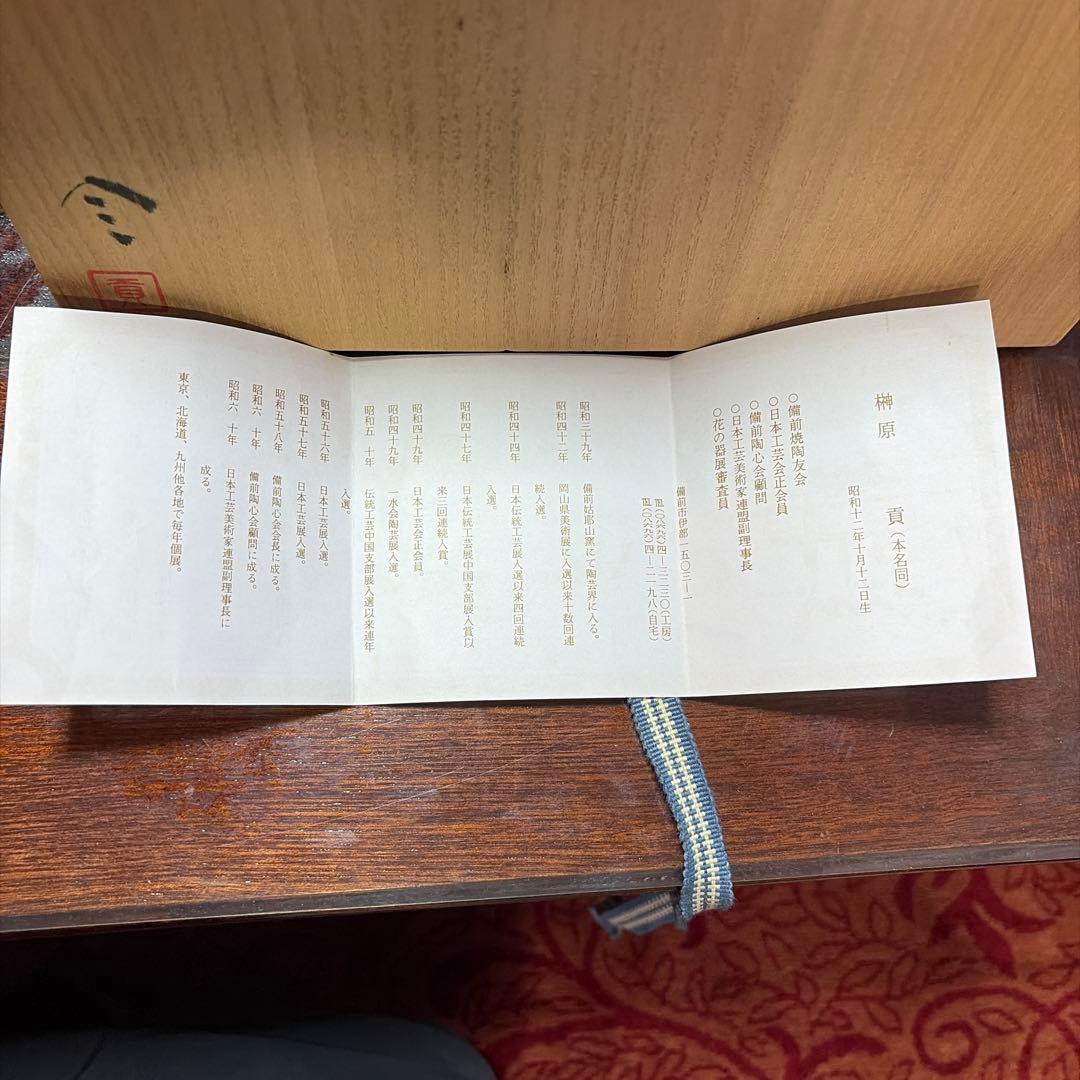 榊原 貢（本名同）
昭和十二年十月十二日生
○備前焼陶友会
○日本工芸会正会員
○備前陶心会顧問
○日本工芸美術家連盟副理事長
○花の器展審査員
備前市伊部一五〇三―一
℡（〇八六九）六四―三二三〇（工房）
℡（〇八六九）六四―二一九八（自宅）
昭和三十九年 備前姑耶山窯にて陶芸界に入る。
昭和四十二年 岡山県美術展に入選以来十数回連
続入選。
昭和四十四年 日本伝統工芸展入選以来四回連続
入選。
昭和四十七年 日本伝統工芸展中国支部展入賞以
来三回連続入賞。
昭和四十九年 日本工芸会正会員。
昭和四十九年 一水会陶芸展入選。
昭和五十年 伝統工芸中国支部展入選以来連年
入選。
昭和五十六年 日本工芸展入選。
昭和五十七年 日本工芸展入選。
昭和五十八年 備前陶心会会長に成る。
昭和六十年 備前陶心会顧問に成る。
昭和六十年 日本工芸美術家連盟副理事長に
成る。
東京、北海道、九州他各地で毎年個展。
貢